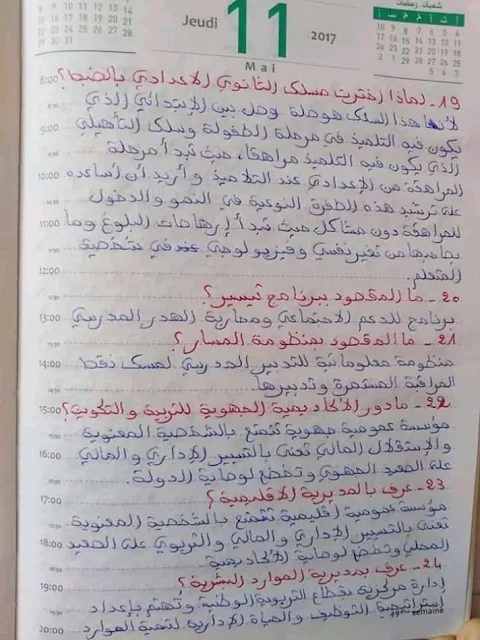 Jeudi 11 2017
Mai
19- لماذا اخترت مسلك الثانوي الاعدادي بالضبط؟
لأن هذا السلك هو حلة وصل بين الابتدائي الذي
يكون فيه التلميذ في مرحلة الطفولة وسلك التأهيلي
الذي يكون فيه التلميذ مراهقا، حيث تبدأ مرحلة
المراهقة من الإعدادي عند التلاميذ وأريد أن أساعده
على ترشيد هذه الطفرة النوعية في النمو والدخول
للمراهقة دون مشاكل حيث تبدأ إرهاصات البلوغ وما
يصاحبها من تغير نفسي وفيزيولوجي في شخصية
المتعلم.
20- ما المقصود ببرنامج تيسير؟
برنامج للدعم الاجتماعي ومحاربة الهدر المدرسي
21- ما المقصود بمنظومة المسار؟
منظومة معلوماتية للتدبير المدرسي لمسك نقط
المراقبة المستمرة وتدبيرها
22- ما دور الأكاديمية الجهوية للتربية والتكوين؟
مؤسسة عمومية جهوية تتمتع بالشخصية المعنوية
والاستقلال المالي تعنى بالتسيير الإداري والمالي
على الصعيد الجهوي وتخضع لوصاية الدولة.
23- عرف بالمديرية الاقليمية؟
مؤسسة عمومية إقليمية تتمتع بالشخصية المعنوية
تعنى بالتسيير الإداري والمالي والتربوي على الصعيد
المحلي وتخضع لوصاية الأكاديمية
24- عرف بمديرية الموارد البشرية؟
إدارة مركزية بقطاع التربية الوطنية وتهتم بإعداد
استراتيجية التوظيف والحياة الإدارية لتنمية الموارد
8:00
9:00
10:00
11:00
12:00
13:00
14:00
15:00
16:00
17:00
18:00
19:00
20:00
semaine